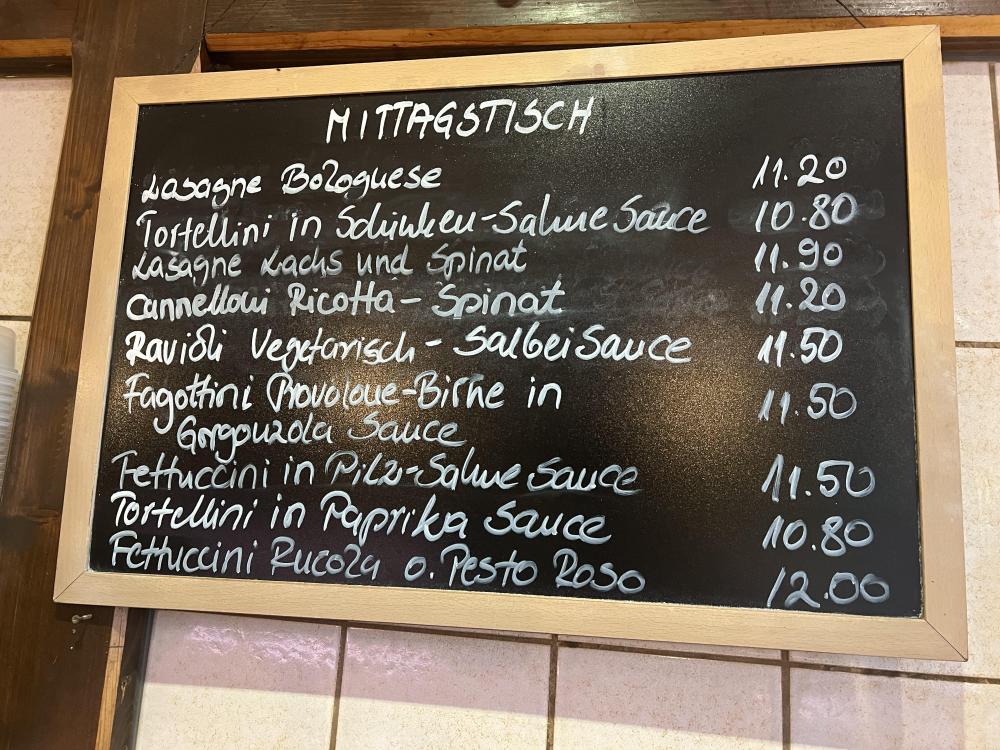 MITTAGSTISCH
Lasagne Bolognese 11.20
Tortellini in Schinken-Sahne Sauce 10.80
Lasagne Lachs und Spinat 11.90
Cannelloni Ricotta-Spinat 11.20
Ravioli Vegetarisch-Salbei Sauce 11.50
Fagottini Provolone-Birne in 11.50
Gorgonzola Sauce
Fettuccini in Pilz-Sahne Sauce 11.50
Tortellini in Paprika Sauce 10.80
Fettuccini Rucola o. Pesto Roso 12.00